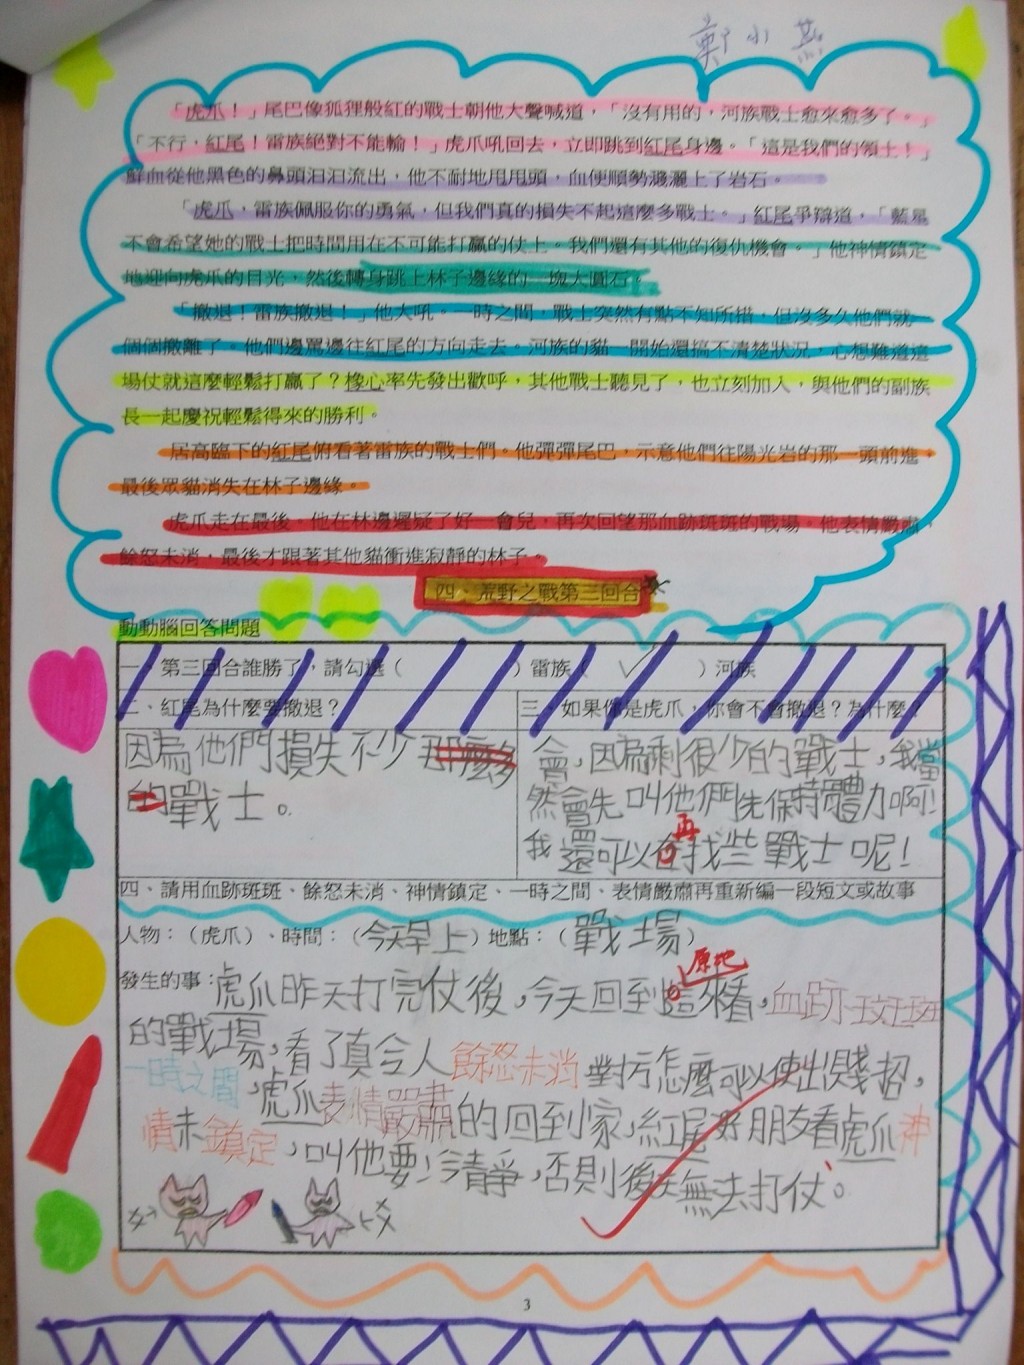 鄭小燕
「虎爪！」尾巴像狐狸般紅的戰士朝他大聲喊道，「沒有用的，河族戰士愈來愈多了。」
「不行，紅尾！雷族絕對不能輸！」虎爪吼回去，立即跳到紅尾身邊。「這是我們的領土！」
鮮血從他黑色的鼻頭汩汩流出，他不耐地甩甩頭，血便順勢濺灑上了岩石。
「虎爪，雷族佩服你的勇氣，但我們真的損失不起這麼多戰士。」紅尾爭辯道，「藍星
不會希望她的戰士把時間用在不可能打贏的仗上。我們還有其他的復仇機會。」他神情鎮定
地迎向虎爪的目光，然後轉身跳上林子邊緣的一塊大圓石。
「撤退！雷族撤退！」他大吼。一時之間，戰士突然有點不知所措，但沒多久他們就一
個個撤離了。他們邊罵邊往紅尾的方向走去。河族的貓一開始還搞不清楚狀況，心想難道這
場仗就這麼輕鬆打贏了？橡心率先發出歡呼，其他戰士聽見了，也立刻加入，與他們的副族
長一起慶祝輕鬆得來的勝利。
居高臨下的紅尾俯看著雷族的戰士們。他彈彈尾巴，示意他們往陽光岩的那一頭前進，
最後眾貓消失在林子邊緣。
虎爪走在最後。他在林邊遲疑了好一會兒，再次回望那血跡斑斑的戰場。他表情嚴肅，
餘怒未消，最後才跟著其他貓衝進寂靜的林子。
四、荒野之戰第三回合
動動腦回答問題
一、第三回合誰勝了，請勾選（　）雷族（✓）河族
二、紅尾為什麼要撤退？
因為他們損失不少那麼多
的戰士。
三、如果你是虎爪，你會不會撤退？為什麼？
會，因為剩很少的戰士，我當
然會先叫他們先保持體力啊！
再
我還可以在找些戰士呢！
四、請用血跡斑斑、餘怒未消、神情鎮定、一時之間、表情嚴肅再重新編一段短文或故事
人物：（虎爪）、時間：（今天早上）地點：（戰場）
原地
發生的事：虎爪昨天打完仗後，今天回到這來看，血跡斑斑
的戰場，看了真令人餘怒未消對方怎麼可以使出賤招，
一時之間，虎爪表情嚴肅的回到家，紅尾好朋友看虎爪神
情未鎮定，叫他要冷靜，否則後天無法打仗。
3